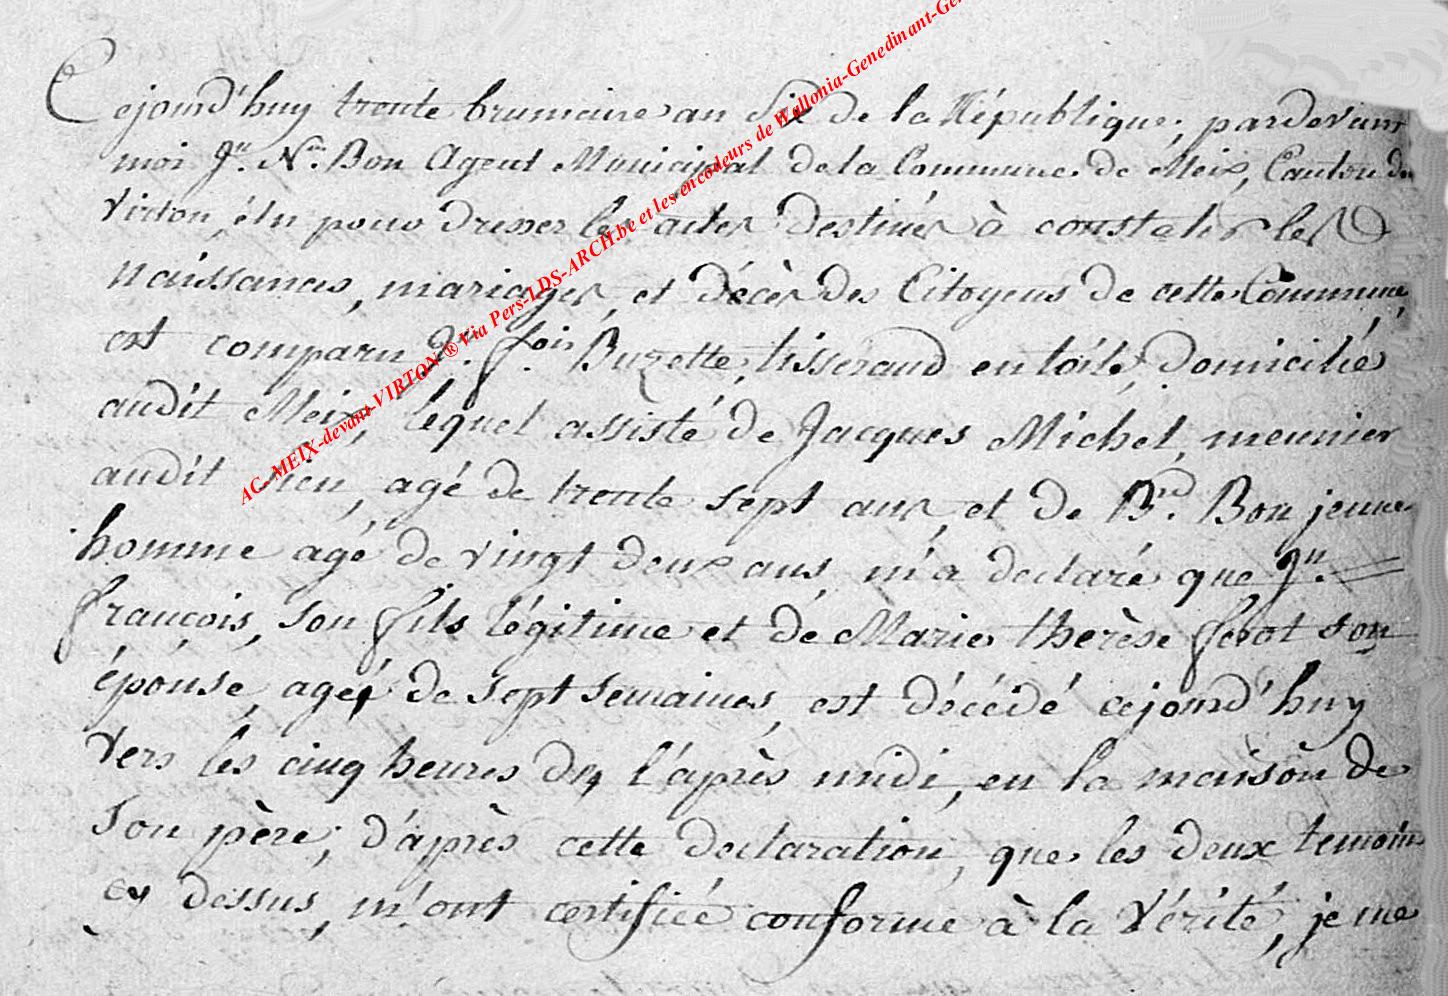 Cejourd'huy trente brumaire an Six de la République, pardevant
moi Jn. Nas. Bon Agent Municipal de la Commune de Meix, Canton de
Virton, élu pour dresser les actes destinés à constater les
naissances, mariages, et décès des Citoyens de cette Commune,
est comparu Jn. fois. Buzette, tisserand en toile, domicilié
audit Meix, lequel assisté de Jacques Michel, meunier
audit lieu, agé de trente sept ans, et de Brd. Bon jeune
homme agé de vingt deux ans, m'a declaré que Jn. =
françois, son fils légitime et de Marie therèse ferot son
épouse, agé de sept semaines, est décédé cejourd'huy
vers les cinq heures de l'après midi, en la maison de
son père; d'après cette declaration, que les deux temoins
cy dessus, m'ont certifiée conforme à la Vérité, je me
AC-MEIX-devant-VIRTON ® Via Pers-LDS-ARCH.be et les encodeurs de Wallonia-Genedinant-Ge